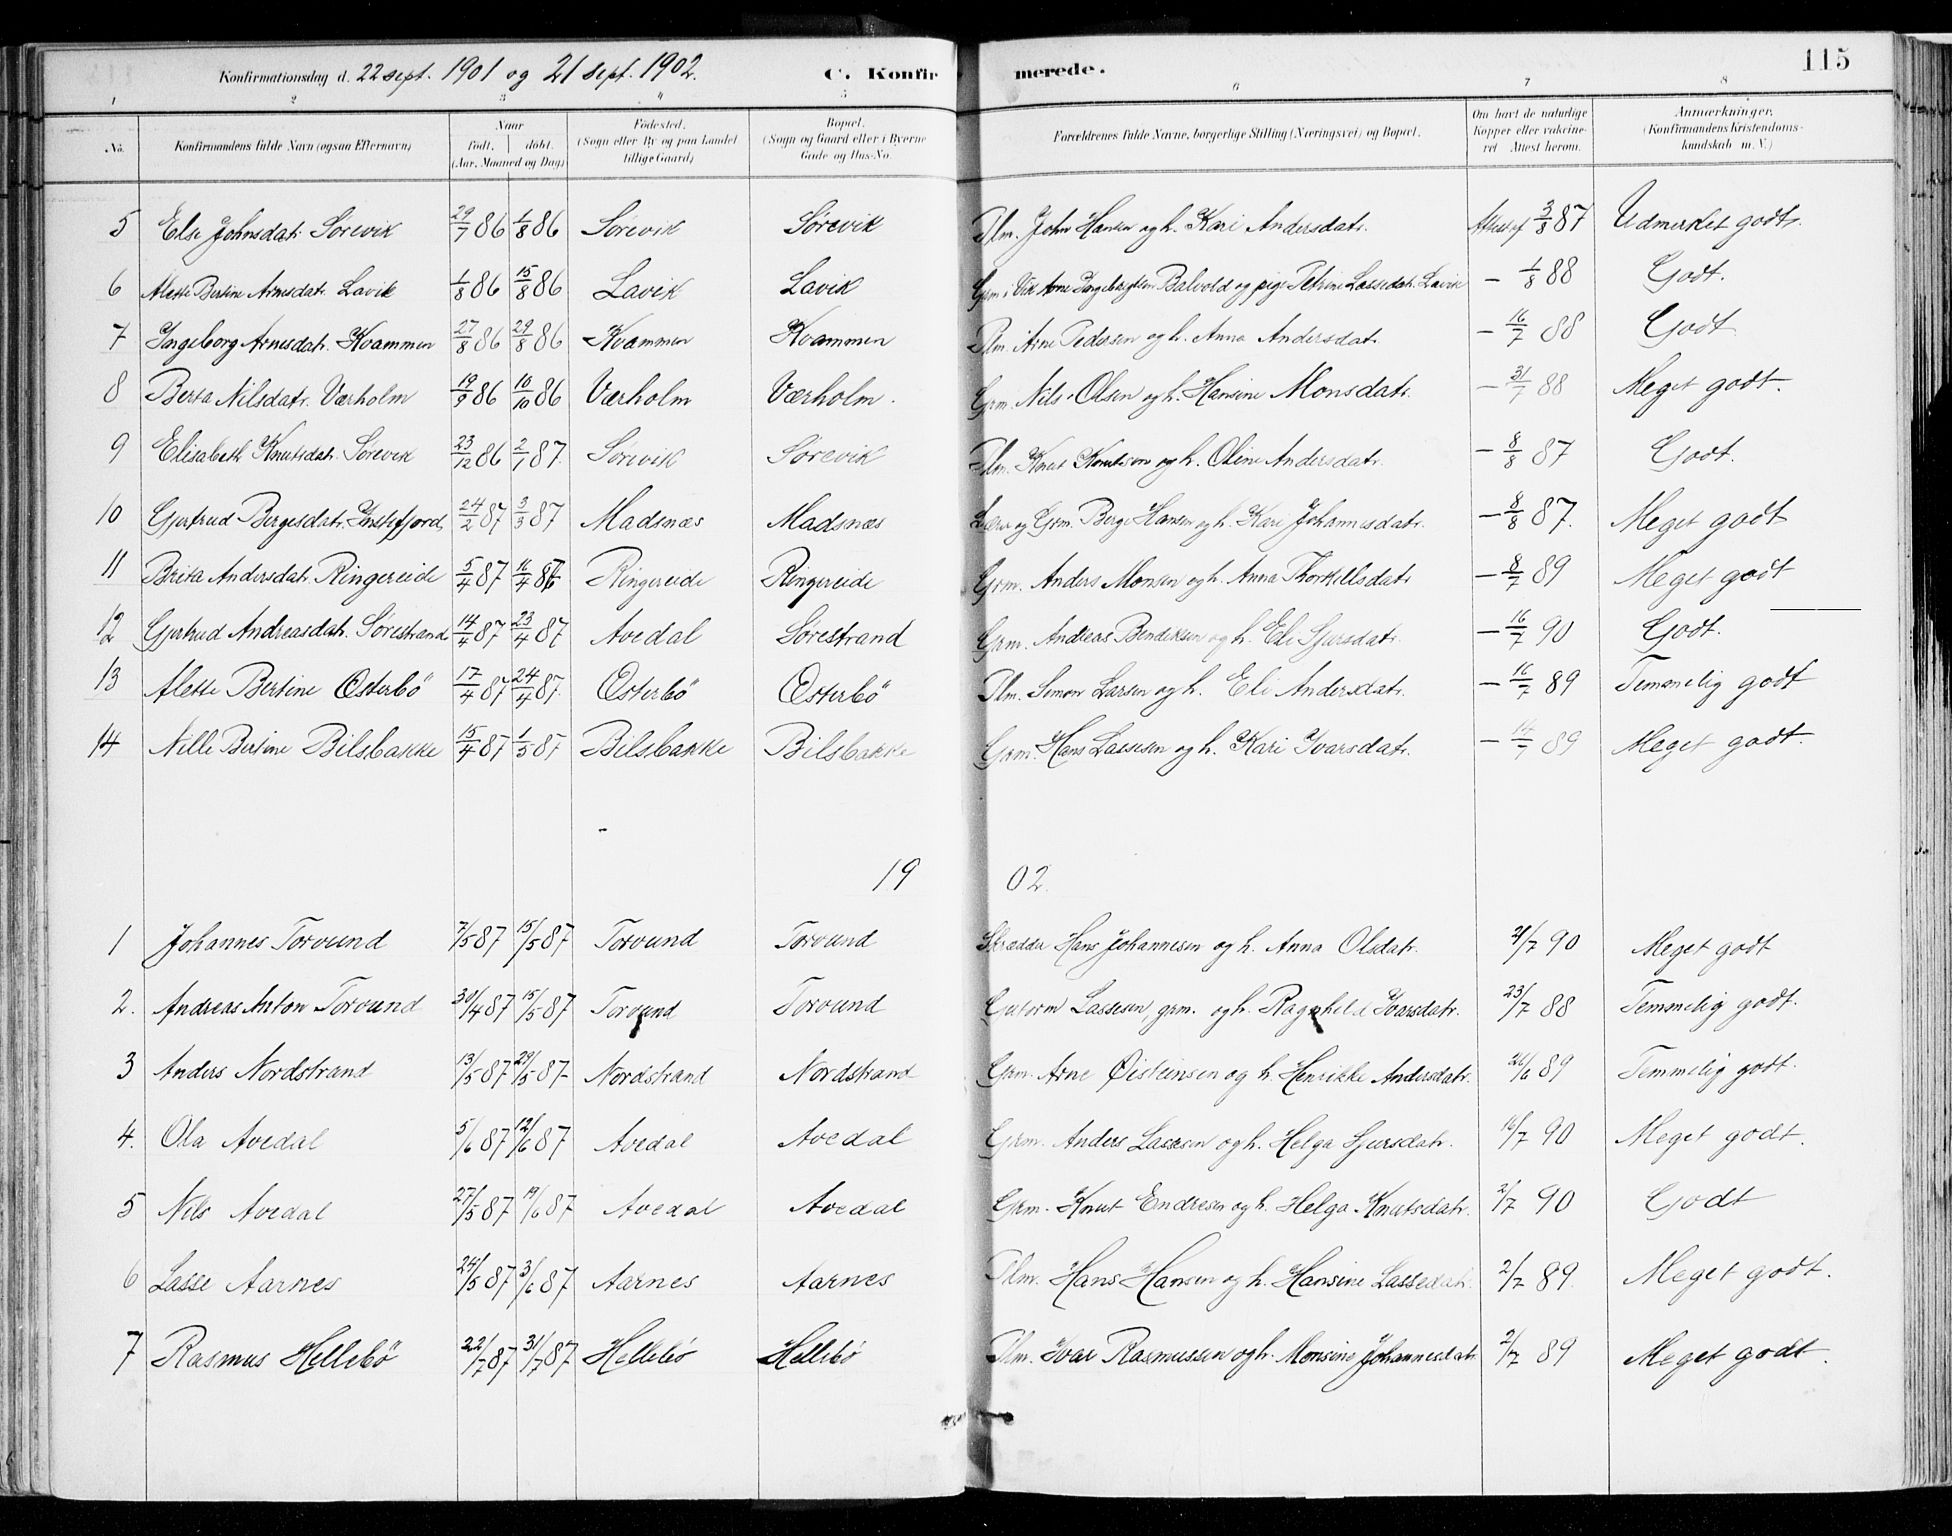 Konfirmationsdag d. 22 sept. 1901 og 21 sept. 1902. C. Konfirmerede. 115
1 2 3 4 5 6 7 8
No. Konfirmandens fulde Navn (ogsaa Efternavn) Naar født. døbt. (Aar, Maaned og Dag) Fødested. (Sogn eller By og paa Landet tillige Gaard) Bopæl. (Sogn og Gaard eller i Byerne Gade og Hus-No. Forældrenes fulde Navne, borgerlige Stilling (Næringsvei) og Bopæl. Om havt de naturlige Kopper eller vakcineret Attest herom. Anmærkninger. (Konfirmandens Kristendomskundskab m. V.)
5 Else Johnsdatr. Sörevik 29/7 86 1/8 86 Sörevik Sörevik Plm. John Hansen og h. Kari Andersdatr. Attest af 3/8 87 Udmerket godt.
6 Alette Bertine Arnesdatr. Lavik 1/8 86 15/8 86 Lavik Lavik Grm. i Vik Arne Ingebrigtsen Balvold og pige Petrine Lassedatr. Lavik - 1/8 88 Godt.
7 Ingeborg Arnesdatr. Kvammen 27/8 86 29/8 86 Kvammen Kvammen Plm. Arne Pedersen og h. Anna Andersdatr. - 16/7 88 Godt
8 Berta Nilsdatr. Værholm 19/9 86 10/10 86 Værholm Værholm. Grm. Nils Olsen og h. Hansine Monsdatr. - 31/7 88 Meget godt.
9 Elisabeth Knutsdatr. Sörevik 23/12 86 2/1 87. Sörevik Sörevik Plm. Knut Knutsen og h. Oline Andersdatr. - 8/8 87 Godt.
10 Gjertrud Bergesdatr. Instefjord 24/2 87 3/3 87 Madsnæs Madsnæs Lærer og Grm. Berge Hansen og h. Kari Johannesdatr. - 8/8 87. Meget godt
11 Brita Andersdatr. Ringereide 5/4 87 11/4 87 Ringereide Ringereide Grm. Anders Monsen og h. Anna Thorkillsdatr. - 8/7 89 Meget godt
12 Gjertrud Andreasdatr. Sörestrand 14/4 87 23/4 87 Avedal Sörestrand Grm. Andreas Bendiksen og h. Eli Sjursdatr. - 16/7 90 Godt.
13 Alette Bertine Österbö 17/4 87 24/4 87. Österbö Österbö Plm. Simon Larsen og h. Eli Andersdatr. - 16/7 89 Temmelig godt
14 Nille Bertine Bilsbakke 15/4 87 1/5 87 Bilsbakke Bilsbakke Grm. Hans Lassesen og h. Kari Ivarsdatr. - 14/7 89 Meget godt.
1902.
1 Johannes Torvund 7/5 87 15/5 87 Torvund Torvund Skrædder Hans Johannesen og h. Anna Olsdatr. 21/7 90 Meget godt
2. Andreas Anton Torvund 30/4 87 15/5 87 Torvund Torvund Guttorm Lassesen grm. og h. Ragnhild Ivarsdatr. 23/7 88 Temmelig godt.
3 Anders Nordstrand 13/5 87 29/5 87 Nordstrand Nordstrand Grm. Arne Øisteinsen og h. Henrikke Andersdatr. 26/6 89 Temmelig godt.
4. Ola Avedal 5/6 87 12/6 87 Avedal Avedal Grm. Anders Lassesen og h. Helga Sjursdatr. 16/7 90 Meget godt.
5 Nils Avedal 27/5 87 19/6 87 Avedal Avedal Grm. Knut Endresen og h. Helga Knutsdatr. 2/7 90 Godt
6 Lasse Aarnes 24/5 87 3/6 87 Aarnes Aarnes Plm. Hans Hansen og h. Hansine Lassedatr. 2/7 89. Meget godt.
7 Rasmus Hellebö 22/7 87 31/7 87 Hellebö Hellebö Plm. Ivar Rasmussen og h. Monsine Johannesdatr. 2/7 89 Meget godt.